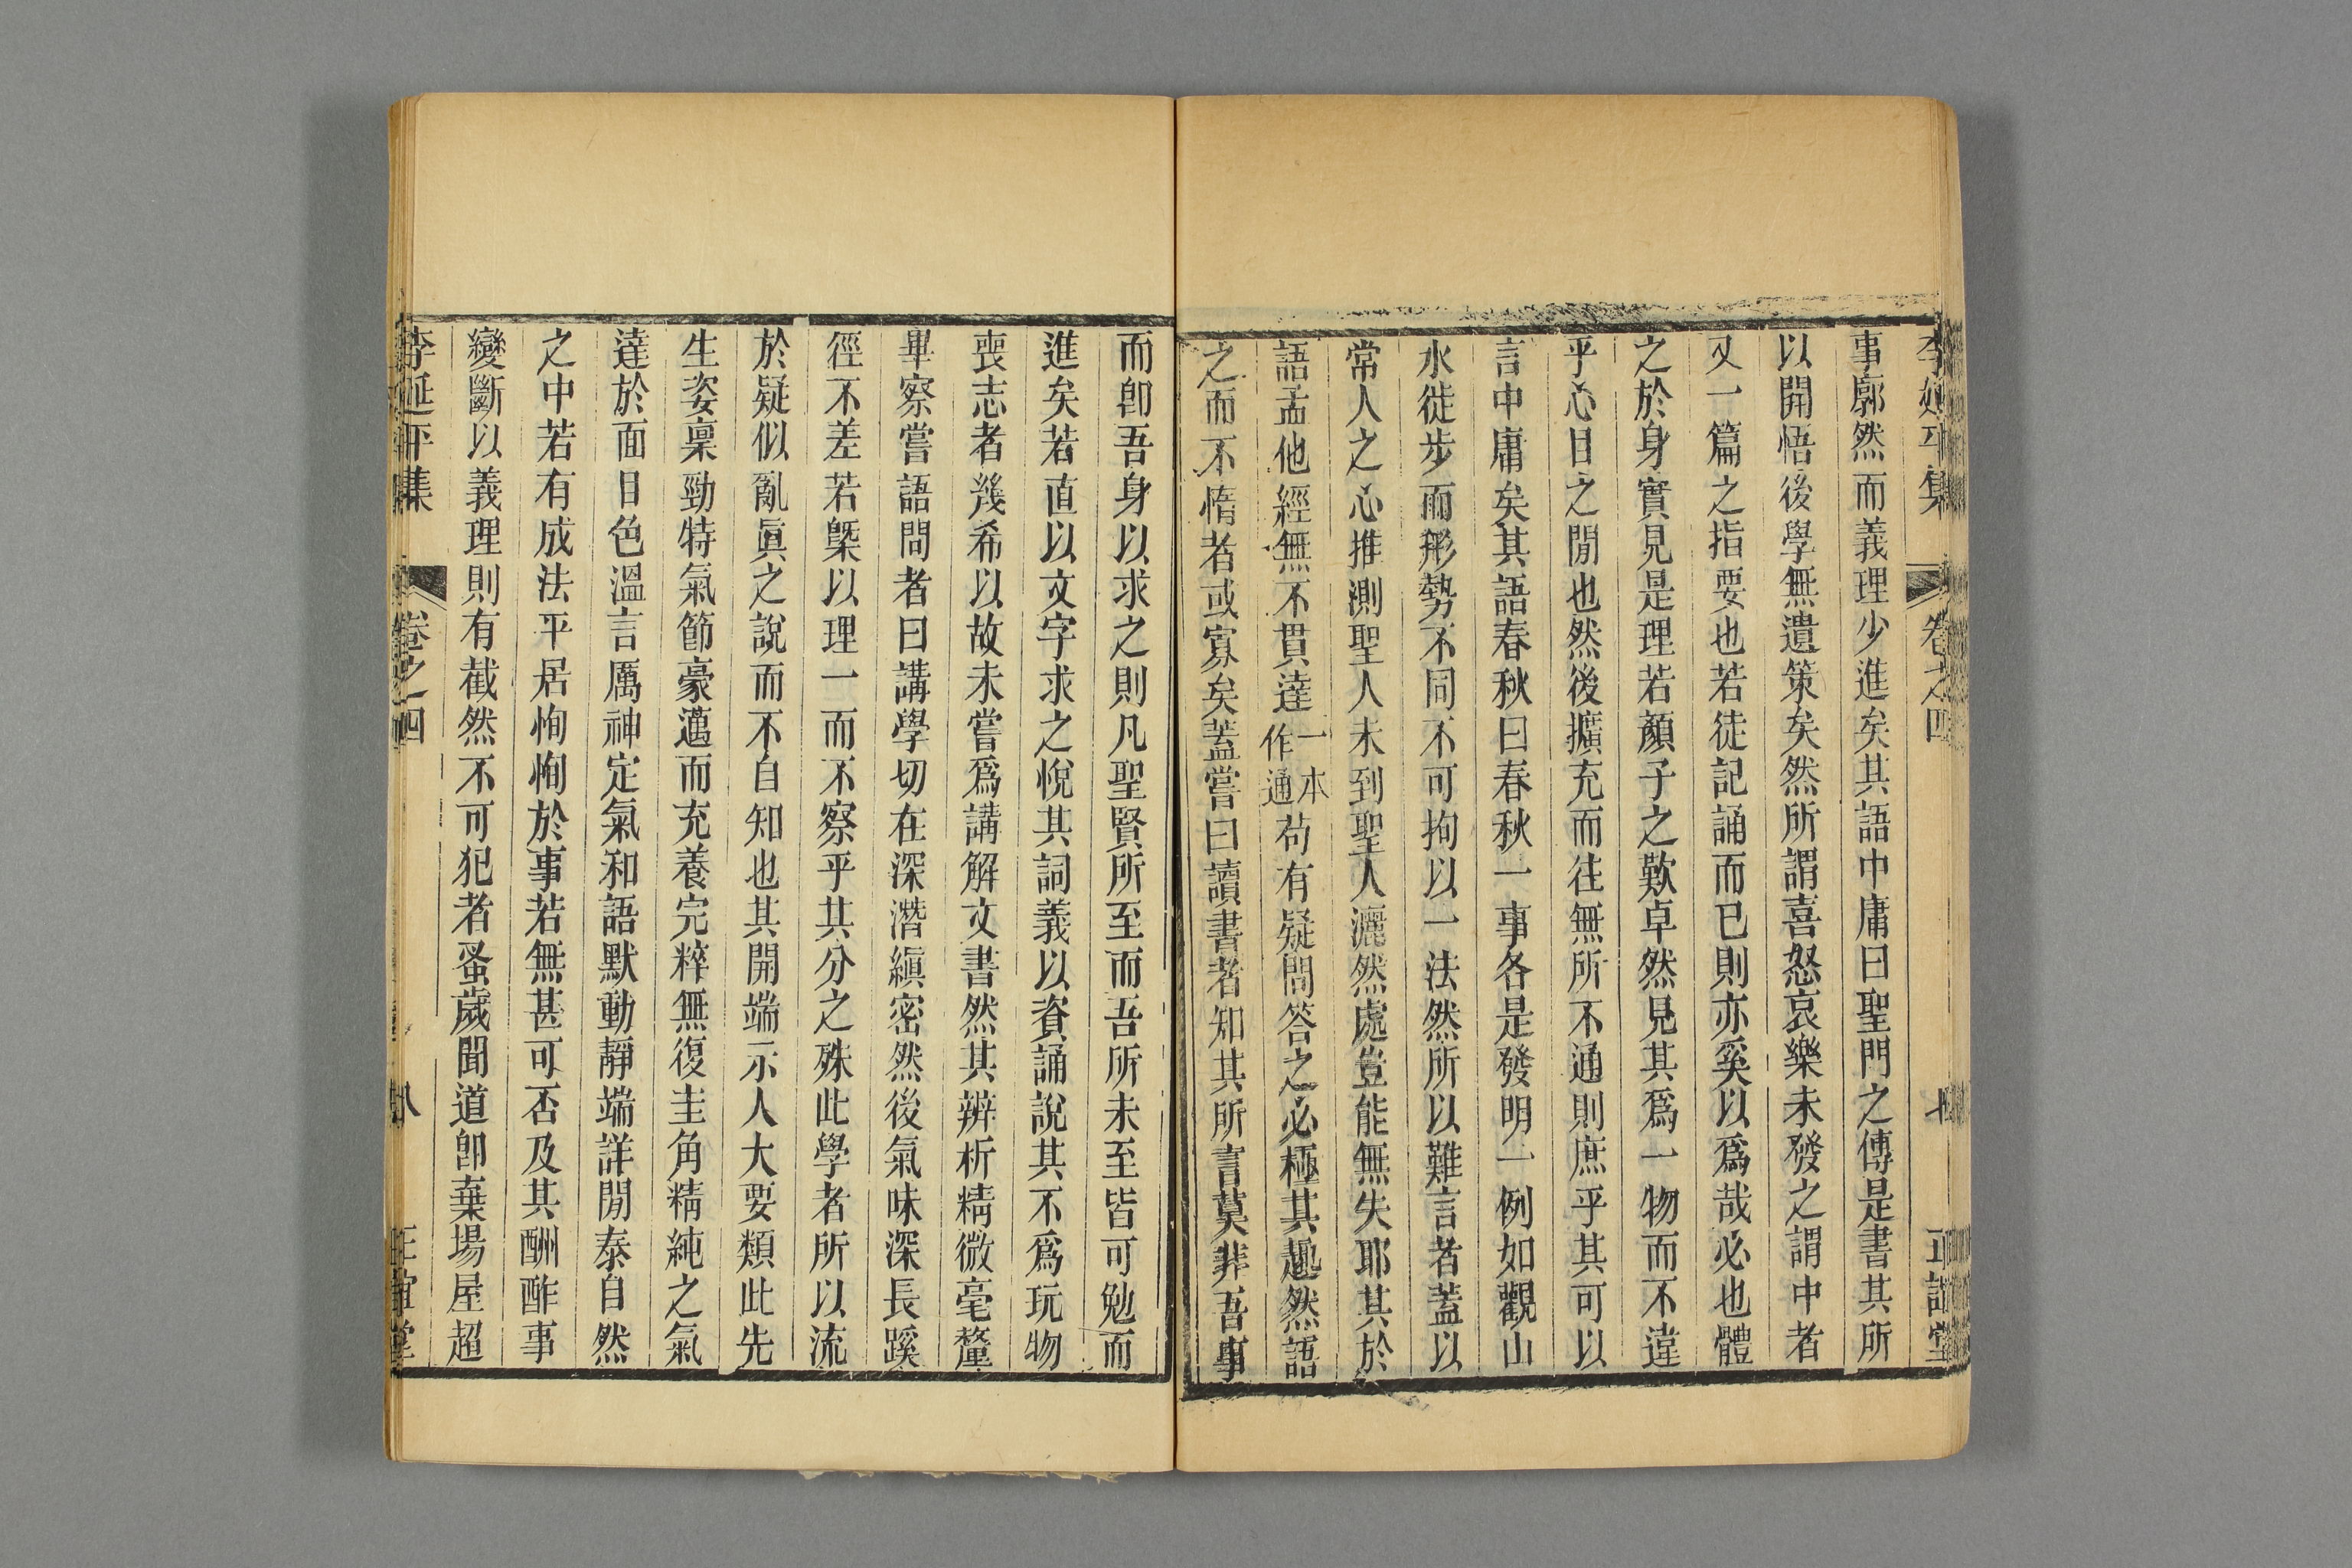 李延平集 卷之四 七 正誼堂
事廓然而義理少進矣其語中庸曰聖門之傳是書其所
以開悟後學無遺策矣然所謂喜怒哀樂未發之謂中者
又一篇之指要也若徒記誦而已則亦奚以爲哉必也體
之於身實見是理若顏子之歎卓然見其爲一物而不違
乎心目之閒也然後擴充而往無所不通則庶乎其可以
言中庸矣其語春秋曰春秋一事各是發明一例如觀山
水徒步而形勢不同不可拘以一法然所以難言者蓋以
常人之心推測聖人未到聖人灑然處豈能無失耶其於
語孟他經無不貫達一本作通苟有疑問答之必極其趣然語
之而不惰者或寡矣蓋嘗曰讀書者知其所言莫非吾事
而卽吾身以求之則凡聖賢所至而吾所未至皆可勉而
進矣若直以文字求之悅其詞義以資誦說其不爲玩物
喪志者幾希以故未嘗爲講解文書然其辨析精微毫釐
畢察嘗語問者曰講學切在深潛縝密然後氣味深長蹊
徑不差若槩以理一而不察乎其分之殊此學者所以流
於疑似亂眞之說而不自知也其開端示人大要類此先
生姿稟勁特氣節豪邁而充養完粹無復圭角精純之氣
達於面目色溫言厲神定氣和語默動靜端詳閒泰自然
之中若有成法平居恂恂於事若無甚可否及其酬酢事
變斷以義理則有截然不可犯者蚤歲聞道卽棄場屋超
李延平集 卷之四 八 正誼堂